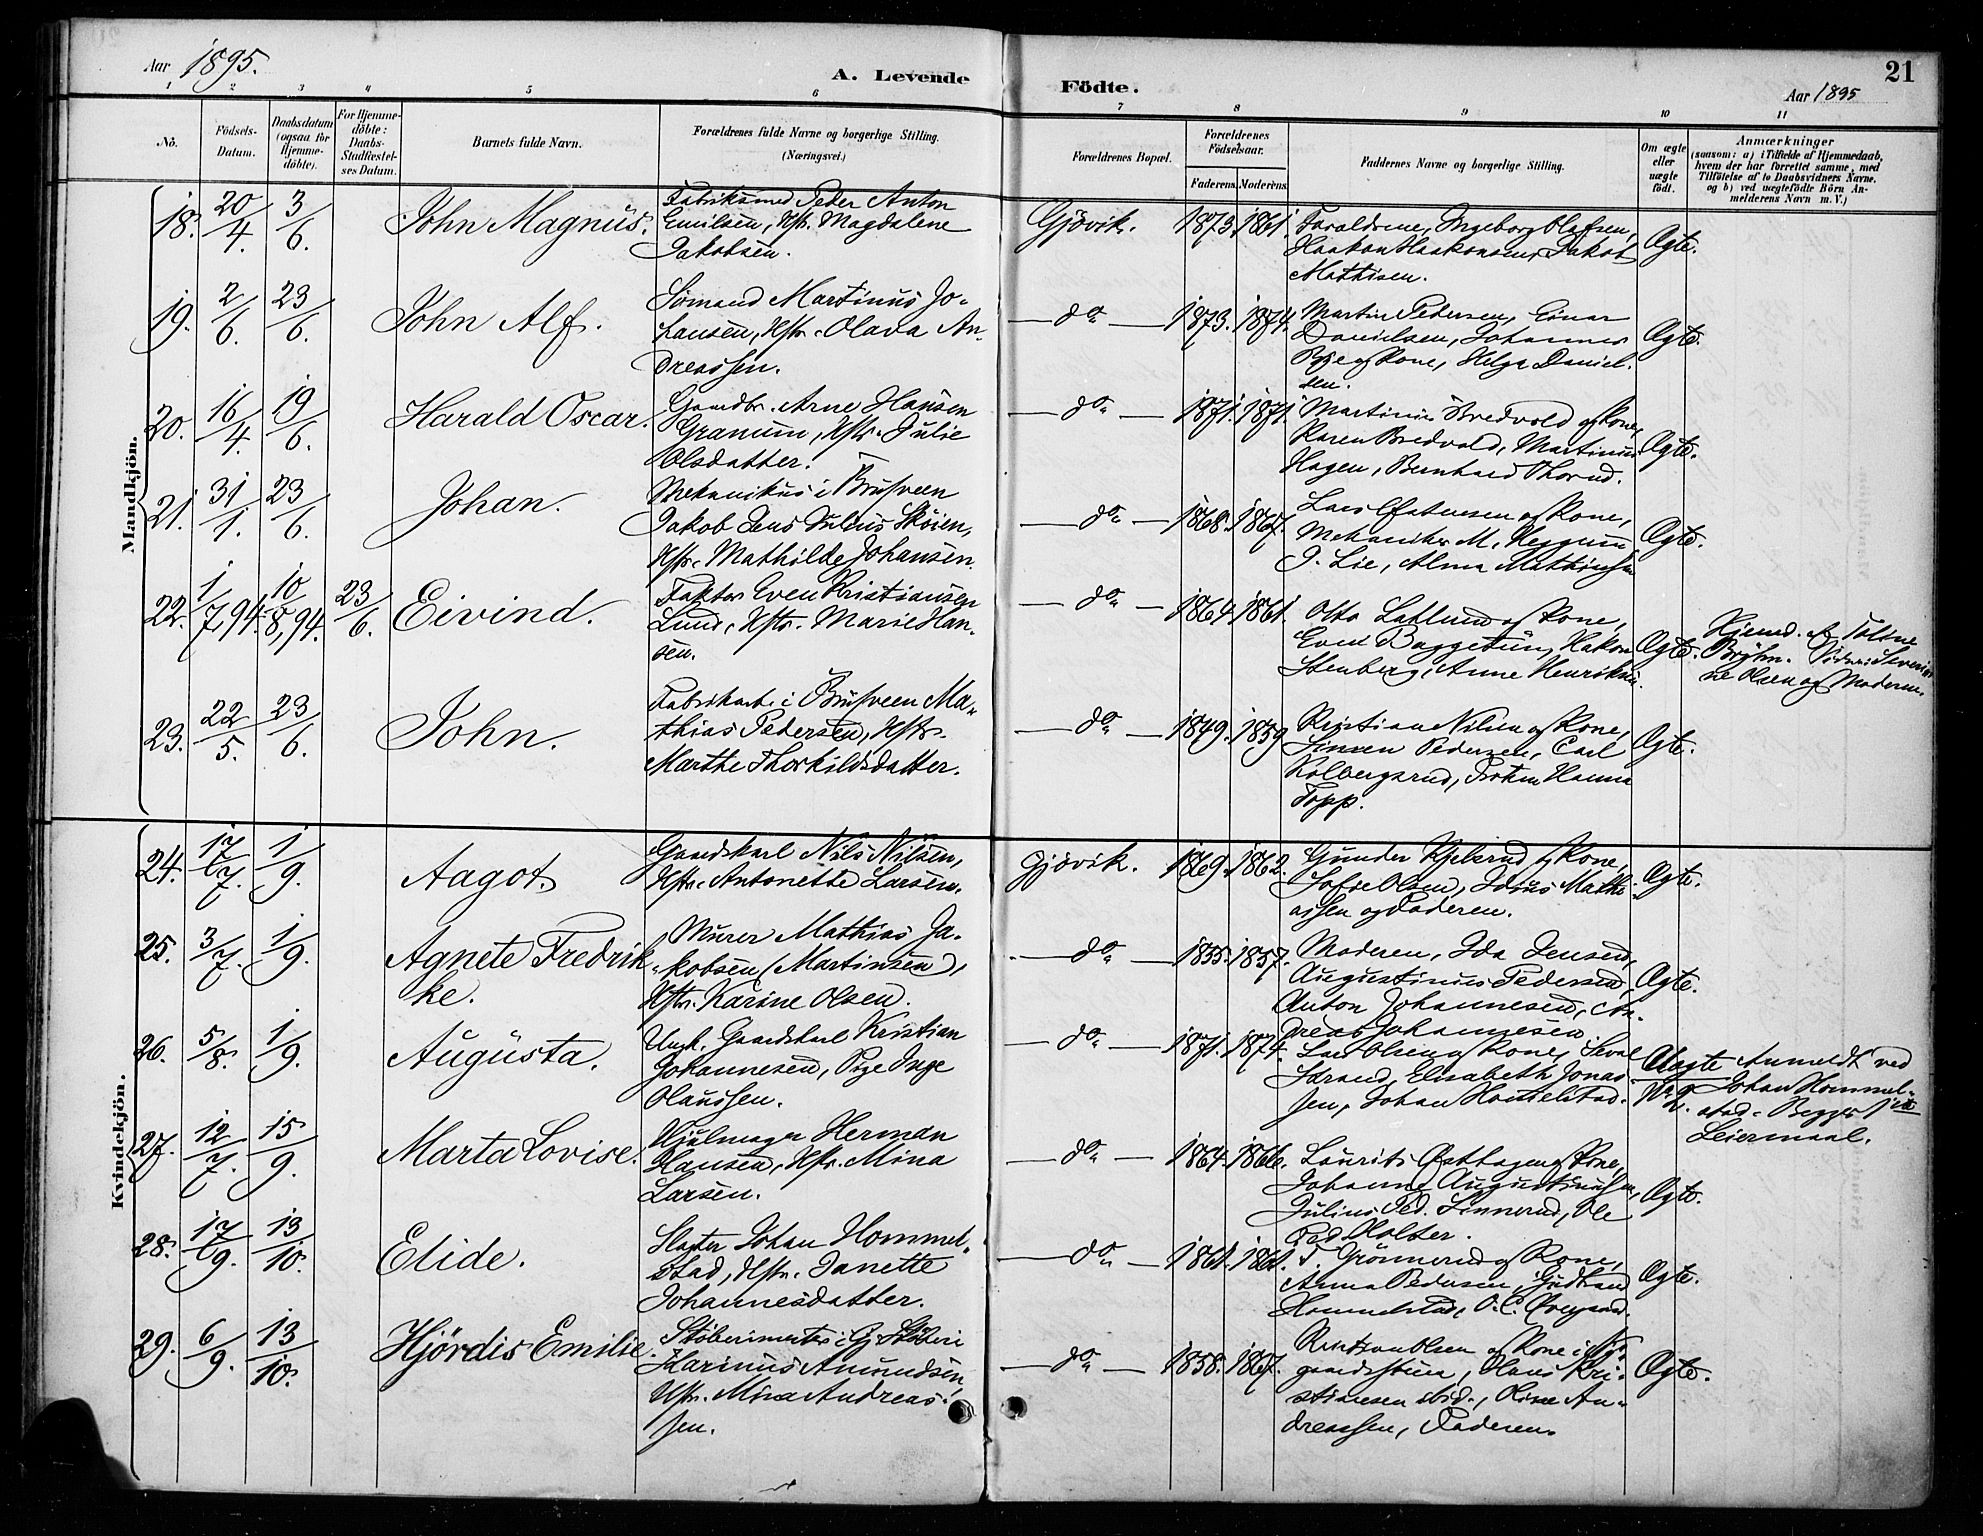 Aar 1895.
A. Levende
Födte.
Aar 1895
21
1 2 3 4 5 6 7 8 9 10 11
No.
Födsels-
Datum.
Daabsdatum
(ogsaa for
Hjemme-
döbte).
For Hjemme-
döbte:
Daabs-
Stadfæstel-
ses Datum.
Barnets fulde Navn.
Forældrenes fulde Navne og borgerlige Stilling.
(Næringsvei.)
Forældrenes Bopæl.
Forældrenes
Födselsaar.
Faderens. Moderens.
Faddernes Navne og borgerlige Stilling.
Om ægte
eller
uægte
födt.
Anmærkninger
(saasom: a) i Tilfælde af Hjemmedaab,
hvem der har forrettet samme, med
Tilföielse af to Daabsvidners Navne,
og b) ved uægtefödte Börn An-
melderens Navn m. V.)
Mandkjön.
18. 20/4. 3/6. John Magnus.
Fabriksmed Peder Anton
Emilsen, Hstr. Magdalene
Jakobsen.
Gjövik. 1873. 1861.
Foraldrene, Ingeborg Olafsen,
Haakon Haakonsen, Jakob
Mathisen.
Ægte.
19. 2/6. 23/6. John Alf.
Sömand Martinus Jo-
hansen, Hstr. Olava An-
dreassen.
do 1873. 1874.
Martin Pedersen, Einar
Danielsen, Johannes
Bye og Kone, Helga Daniel-
sen.
Ægte.
20. 16/4. 19/6. Harald Oscar.
Gaardbr. Arne Hansen
Granum, Hstr. Julie
Olsdatter.
do 1871. 1871.
Martinus Bredvold og Kone,
Karen Bredvold, Martinus
Hagen, Bernhard Thorud.
Ægte.
21. 31/1. 23/6. Johan.
Mekanikus i Brusveen
Jakob Jens Julius Skøien,
Hstr. Mathilde Johansen.
do 1868. 1867.
Lars og Kone,
Mekaniker M. Heggum
J. Lie, Alma Mathisen
Ægte.
22. 1/7,94. 10/8,94. 23/6. Eivind.
Faktor Even Kristiansen
Lund, Hstr. Marie Han-
sen.
do 1864. 1861.
Otto og Kone,
Even Baggetun, Hakon
Stenberg, Anne Henriksen.
Ægte.
Hjemd. af
Severi-
ne Olsen og Moderen.
23. 22/5. 23/6. John.
Fabrikarb. i Brusveen Ma-
thias Pedersen, Hstr.
Marthe Thorkildsdatter.
do 1849. 1859
Kristian Nilsen og Kone,
Simen Pedersen, Carl
Kolbergsrud, Frøken Hanna
Topp.
Ægte.
Kvindekjön.
24. 17/7. 1/9. Aagot.
Gaardskarl Nils Nilsen,
Hstr. Antonette Larsen.
Gjövik. 1869. 1862.
Gunder Kjelsrud og Kone,
Sofie Olsen, Idius Mathi-
assen og Faderen.
Ægte.
25. 3/7. 1/9. Agnete Fredrik-
ke.
Murer Mathias Ja-
kobsen (Martinsen),
Hstr. Karine Olsen.
do 1855. 1857.
Moderen, Ida Jensen,
Augustinus Pedersen,
Anton Johannesen, An-
dreas Johannesen
Ægte.
26. 5/8. 1/9. Augusta.
Ungk. Gaardskarl Kristian
Johannesen, Pige Inge
Olaussen.
do 1871. 1874.
Lars Olsen og Kone, Seval
Strand, Elisabeth Jonas-
sen, Johan Hommelstad.
Uægte
No 2.
Anmeldt ved
Johan Hommel-
stad. Begges 1ste
Leiermaal.
27. 12/7. 15/9. Marta Lovise.
Hjulmager Herman
Hansen, Hstr. Mina
Larsen.
do 1864. 1866.
Laurits Østhagen og Kone,
Johanne Augustinussen,
Julius Ped. Linnerud, Ole
Ped. Holter.
Ægte.
28. 17/9. 13/10. Elide.
Slagter Johan Hommel-
stad, Hstr. Janette
Johannesdatter.
do 1861. 1861.
T. Grönnerud og Kone,
Anna Pedersen, Gudbrand
Hommelstad, O. C.
Ægte.
29. 6/9. 13/10. Hjördis Emilie.
Støberimester i Gj. Støberi
Karinus Amundsen,
Hstr. Mina Andreas-
sen.
do 1858. 1867.
Kristian Olsen og Kone i
Hans Kri-
stiansen ibid., Oline An-
dreassen, Faderen.
Ægte.